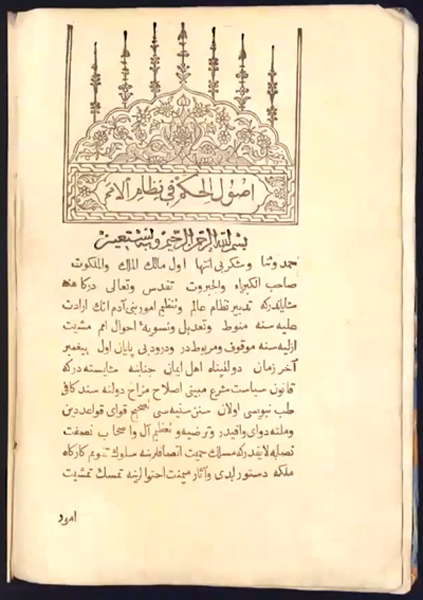 اصول الحكم فى نظام الامم
بسم الله الرحمن الرحيم وبه نستعين
حمد وثنا وشكر بى انتها اول مالك الملك والملكوت
صاحب الكبرياء والجبروت تقدس وتعالى دركاهنه
شاياندركه تدبير نظام عالم وتنظيم امور بنى آدم انك ارادت
عليه سنه منوط وتعديل وتسويه احوال امم مشيت
ازليه سنه موقوف ومربوطدر ودرود بى پايان اول پيغمبر
آخر زمان دولتپناه اهل ايمان جنابنه شايسته دركه
قانون سياست شرع مبينى اصلاح مزاج دولته سند كافى
طب نبويسى اولان سنن سنيه سى تصحيح قواى قواعد دين
وملته دواى وافيدر وترضيه وتعظيم آل واصحاب نصفت
نصابه لايقدركه مسلك حميت اتصافلرينه سلوك تقويم كاركاه
ملكه دستور ابدى وآثار ميمنت احتوالرينه تمسك تمشيت
امور